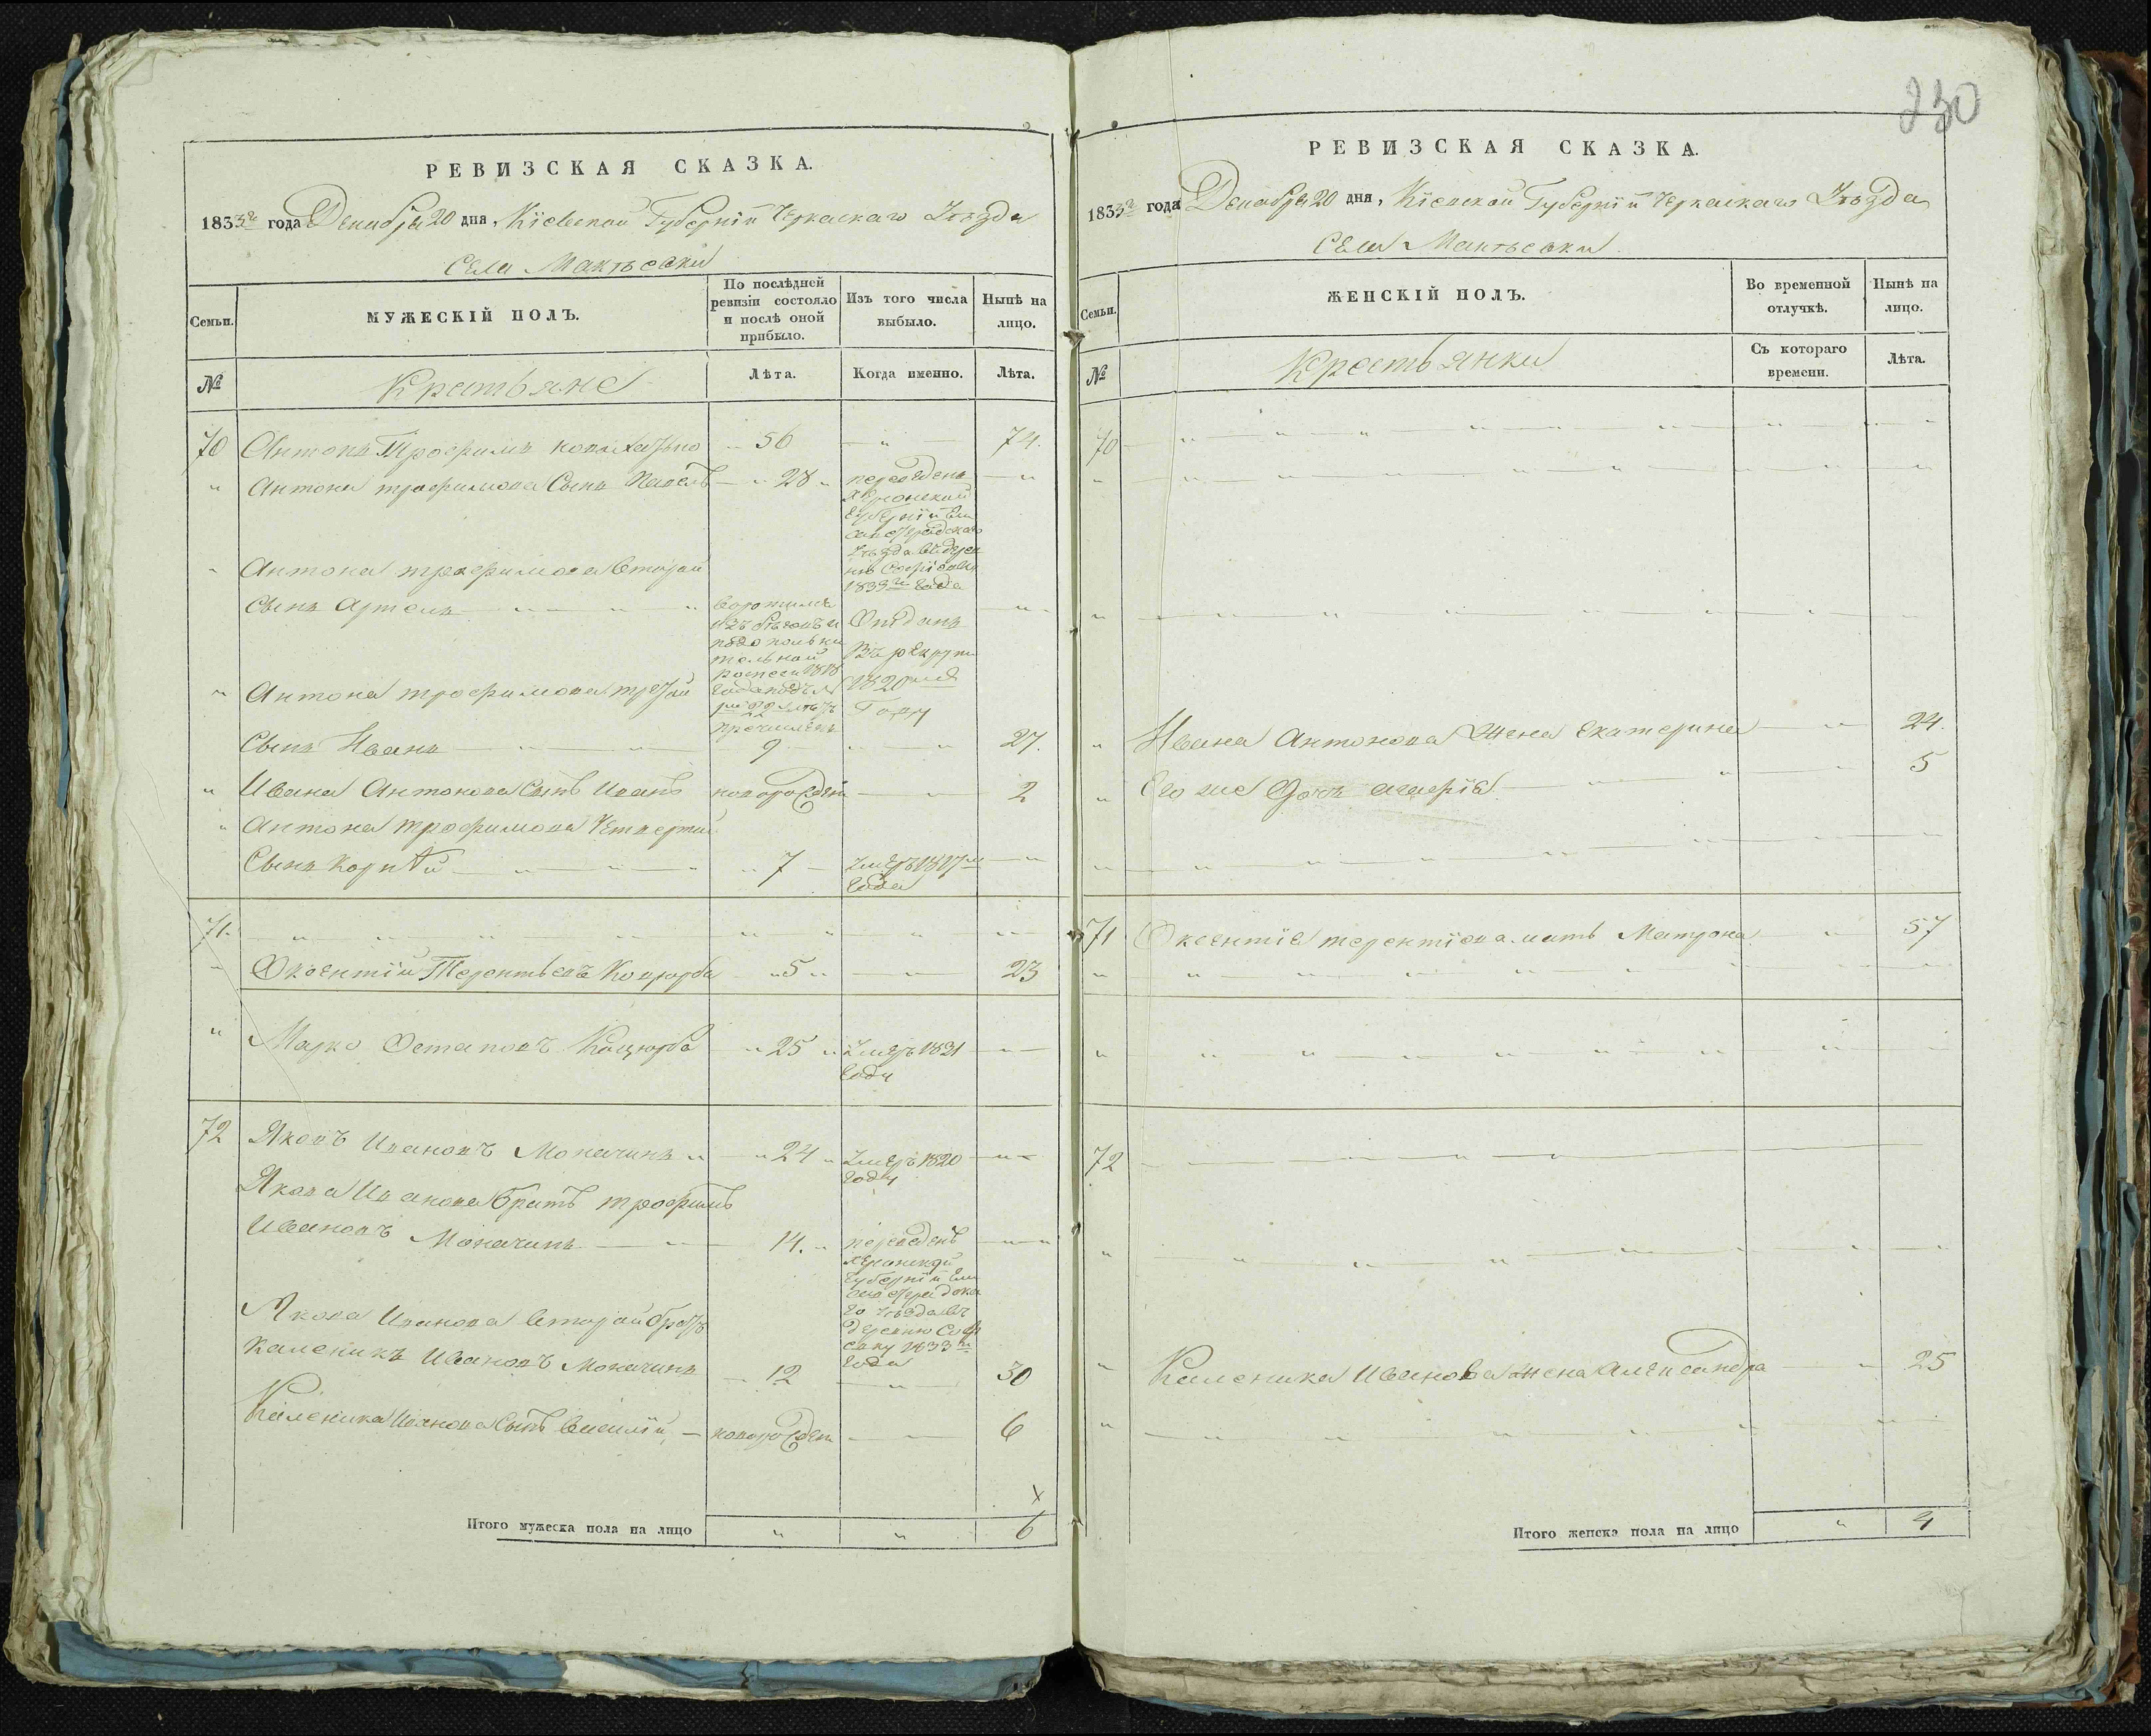 230
РЕВИЗСКАЯ СКАЗКА.
1833го года Декабря 20 дня, Кіевской Губерніи Черкаскаго Уѣзда
Села Мактѣевки
Семьи.
МУЖЕСКІЙ ПОЛЪ.
По послѣдней ревизіи состояло и послѣ оной прибыло.
Изъ того числа выбыло.
Нынѣ на лицо.
№
Крестьяне
Лѣта.
Когда именно.
Лѣта.
70 Антонъ Трофимъ 56 74.
Антона трофимова Сынъ Павелъ 28 переведенъ
Херсонской
Губерніи Ели
саветградскаго
Уѣзда въ дерев
1833го Года
Антона трофимова второй
Сынъ Артемъ Отданъ
въ рекруты
1820
Году
Антона трофимова третой
Сынъ Иванъ 9 27.
Ивана Антонова Сынъ Иванъ новорожден 2
Антона трофимова Четвертый
Сынъ Корнѣй 7 Умеръ 1817го
Года
71.
Оксентій Терентьевъ Коцюрба 5 23
Марко Остаповъ Коцюрба 25 Умеръ 1831
Году
72 Яковъ Ивановъ Моначинъ 24 Умеръ 1820
Году
Якова Иванова братъ трофимъ
Ивановъ Моначинъ 14. переведенъ
Херсонской
Губерніи Ели
саветградска
го Уѣзда въ
деревню Софі
евку 1833го
Года
Якова Иванова второй братъ
Каленикъ Ивановъ Моначинъ 12 30
Каленика Иванова Сынъ Василій новорожден 6
х
Итого мужеска пола на лицо 6
РЕВИЗСКАЯ СКАЗКА.
1833го года Декабря 20 дня, Кіевской Губерніи Черкаскаго Уѣзда
Села Мактѣевки
Семьи.
ЖЕНСКІЙ ПОЛЪ.
Во временной отлучкѣ.
Нынѣ на лицо.
№
Крестьянки
Съ котораго времени.
Лѣта.
70
Ивана Антонова Жена Екатерина 24.
Его же Дочь 5
71 Оксентіе терентіова мать Матрона 57
72
Каленика Иванова жена Александра 25
Итого женска пола на лицо 4